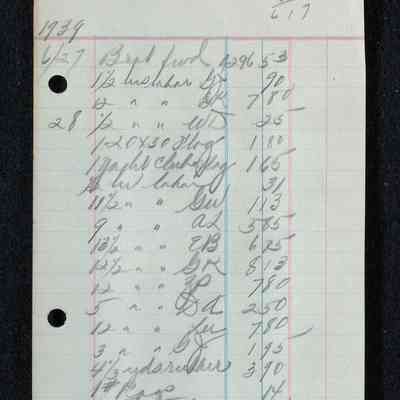 617
1939
6/27 Bspt fwd 1296 53
1/2 " " 90
12 " " 7 80
28 1/2 " " WD 25
1-20x30 Flag 1 80
1 Yacht Club Flag 1 65
1/2 hr labor 31
11 1/2 " " GW 1 13
9 " " AL 5 85
13 1/2 " " EB 6 25
12 1/2 " " GR 8 13
12 " " 7 80
5 " " 2 50
12 " " 7 80
3 " " 1 95
4 1/2 yds 3 90
1# Rags 14